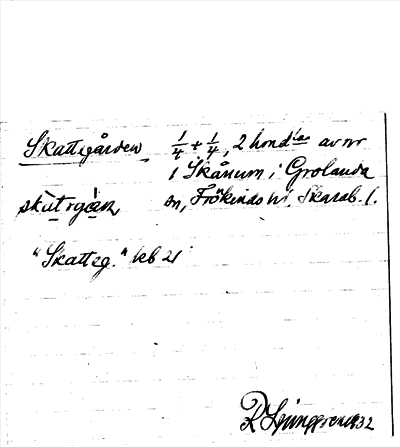 Skattegården 1/4 + 1/4, 2 hmdlar av nr
1 Skånum i Grolanda
sn, Frökinds hd, Skarab. l.
"Skatteg." kb 21
R Ljunggren 1932